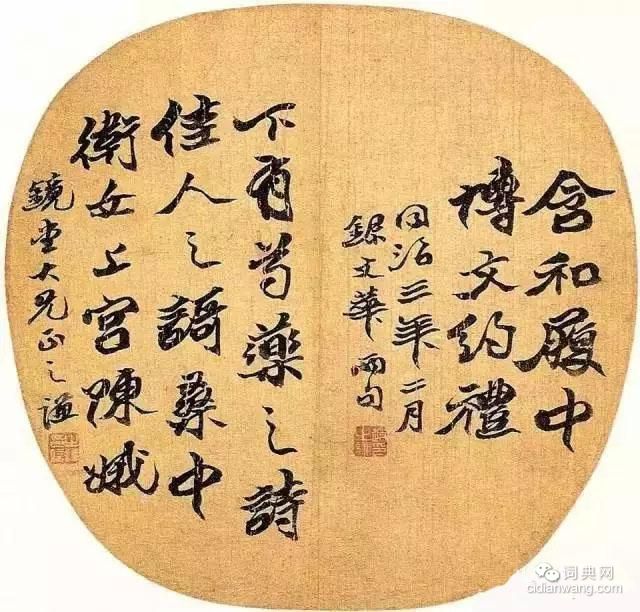 含和履中
博文約禮
同治三年二月
錄文華兩句
下有芍藥之詩
佳人之謌桑中
衛女上宮陳娥
鏡堂大兄正之謙
词典网
cidianwang.com